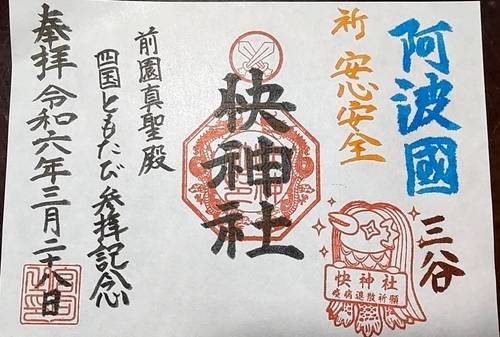 阿波國
三谷
祈 安心安全
快神社
前園真聖殿
四国ともたび 参拝記念
奉拝 令和六年三月二十八日
快神社
疫病退散祈願